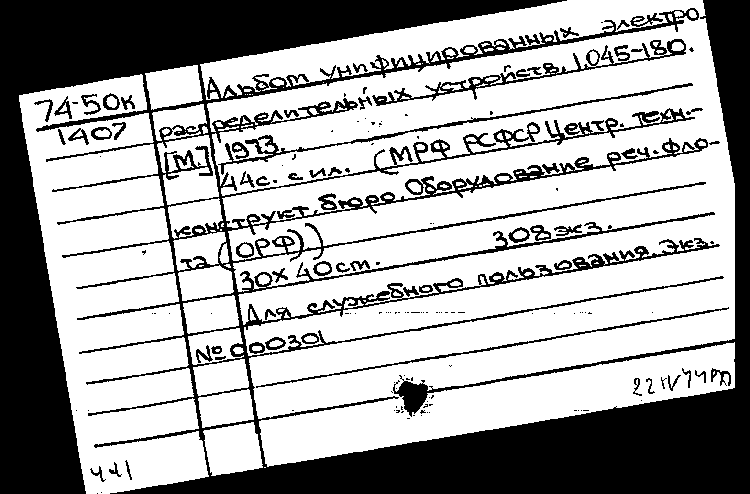 74-50к
1407
Альбом унифицированных электро-
распределительных устройств. 1.045-180.
[М.] 1973.
44с. с ил. (МРФ РСФСР Центр. техн.-
конструкт. бюро. Оборудование реч. фло-
та (ОРФ))
30×40cm. 308 экз.
Для служебного пользования. Экз.
№ 000301
22 IV 74
441